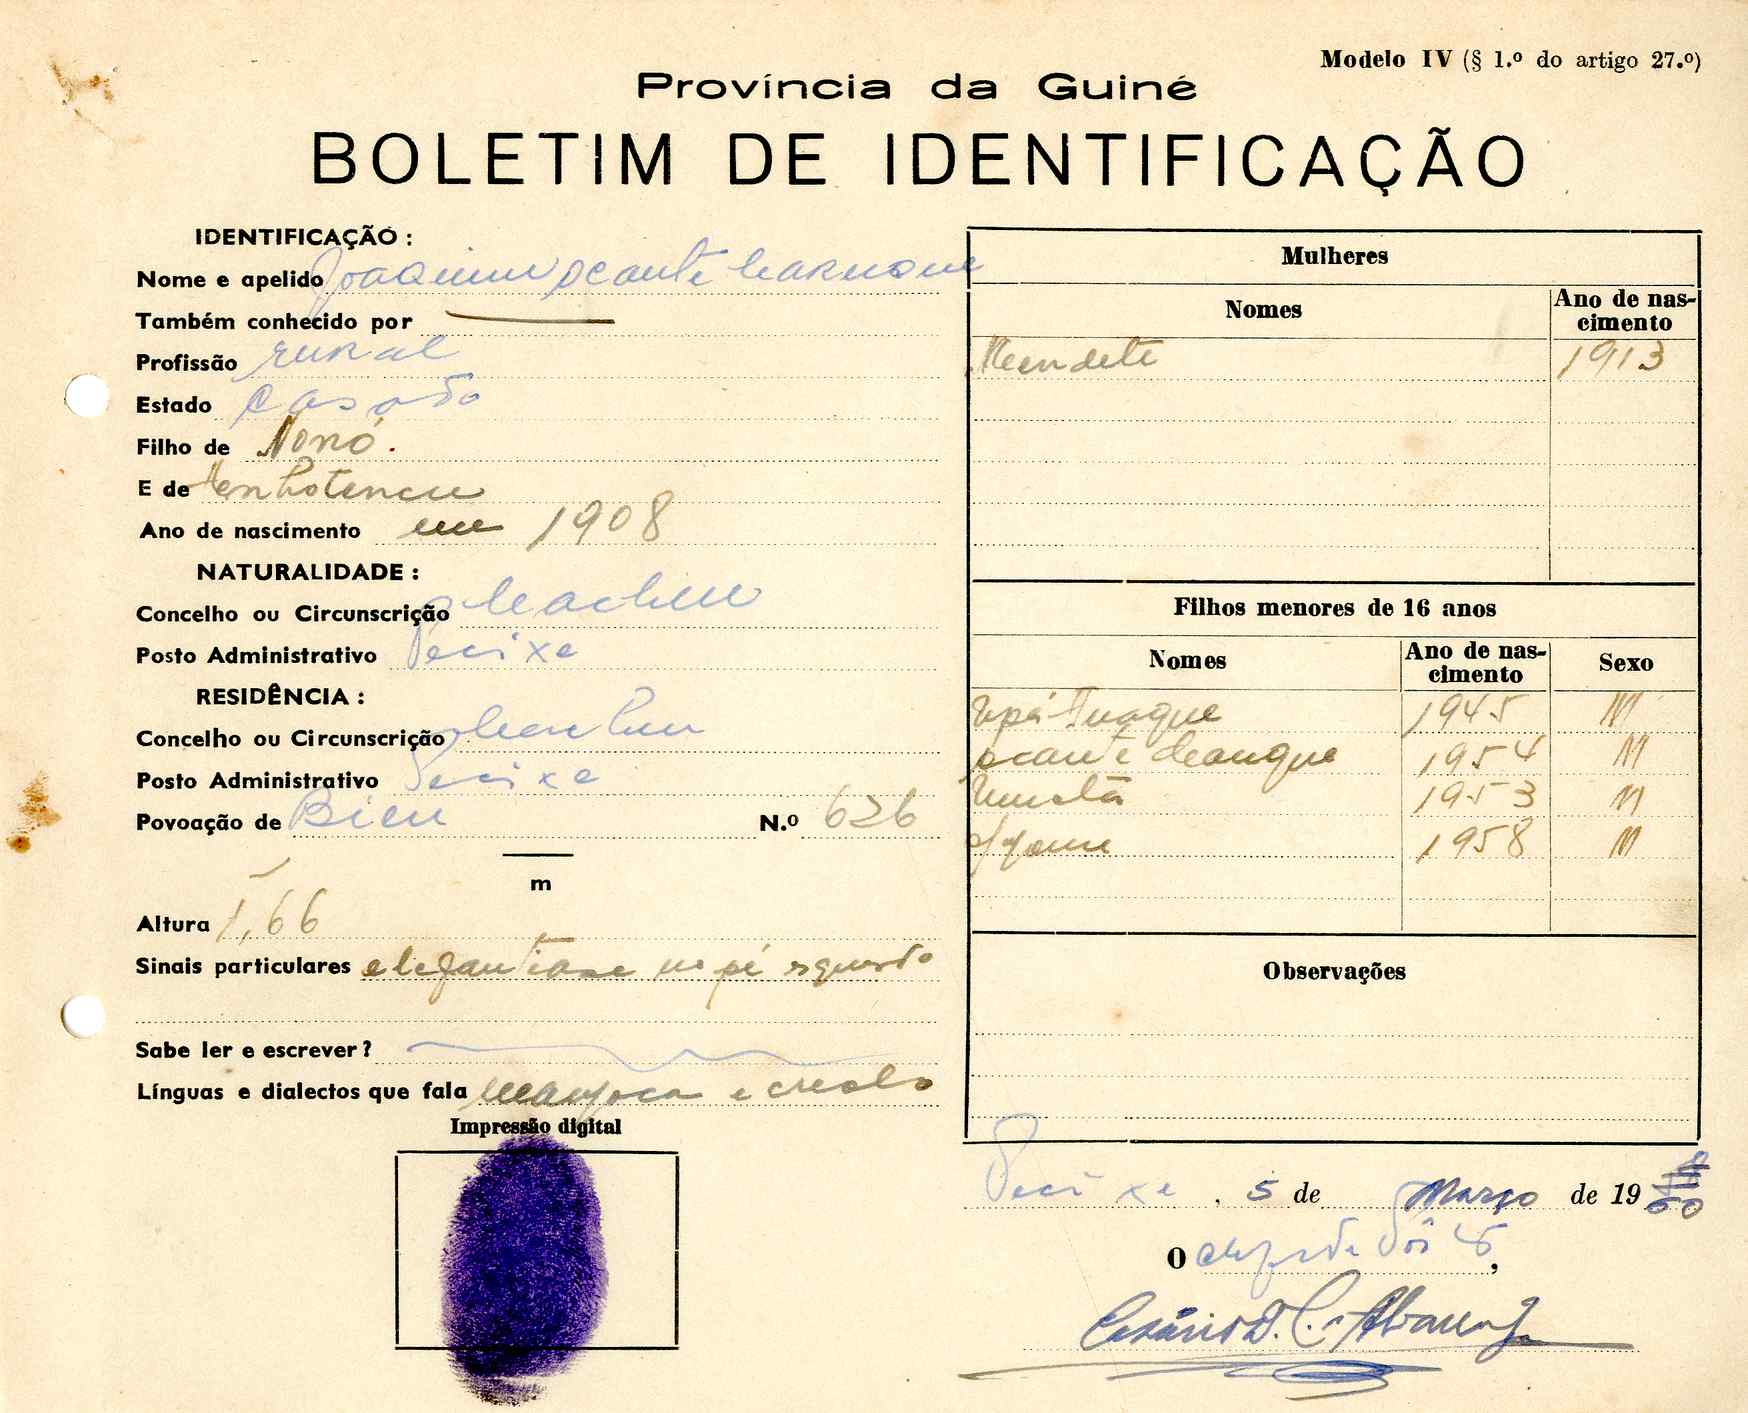 Modelo IV (§ 1.º do artigo 27.º)
Província da Guiné
BOLETIM DE IDENTIFICAÇÃO
IDENTIFICAÇÃO :
Nome e apelido Joaquim Ocante
Também conhecido por
Profissão rural
Estado casado
Filho de Nonó.
E de
Ano de nascimento em 1908
NATURALIDADE :
Concelho ou Circunscrição Cacheu
Posto Administrativo Pecixe
RESIDÊNCIA :
Concelho ou Circunscrição Cacheu
Posto Administrativo Pecixe
Povoação de Bieu N.º 626
m
Altura 1,66
Sinais particulares elefantiase no pé esquerdo
Sabe ler e escrever ?
Línguas e dialectos que fala Manjaca e creolo
Impressão digital
Mulheres
Nomes
Ano de nas-
cimento
1913
Filhos menores de 16 anos
Nomes
Ano de nas-
cimento
Sexo
1945 M
Ocante 1954 M
1953 M
1958 M
Observações
Pecixe, 5 de Março de 19
O chefe de Pôsto,